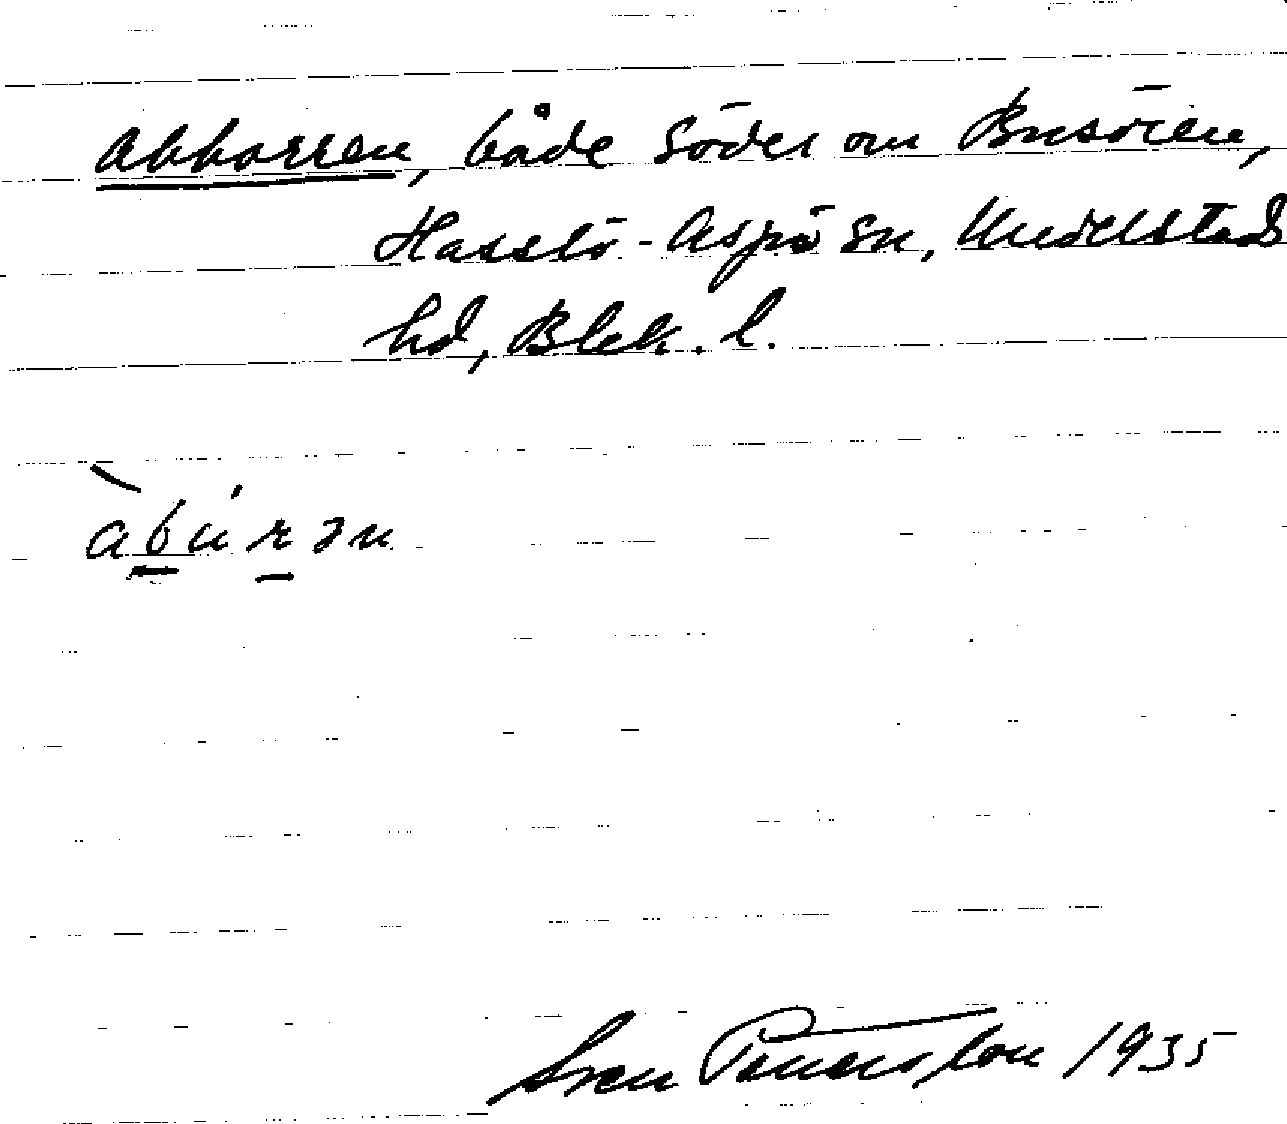 Abborren, både söder om Busören,
Hasslö-Aspö sn, Medelstads
hd, Blek. l.
àbu'rən
Sven 1935